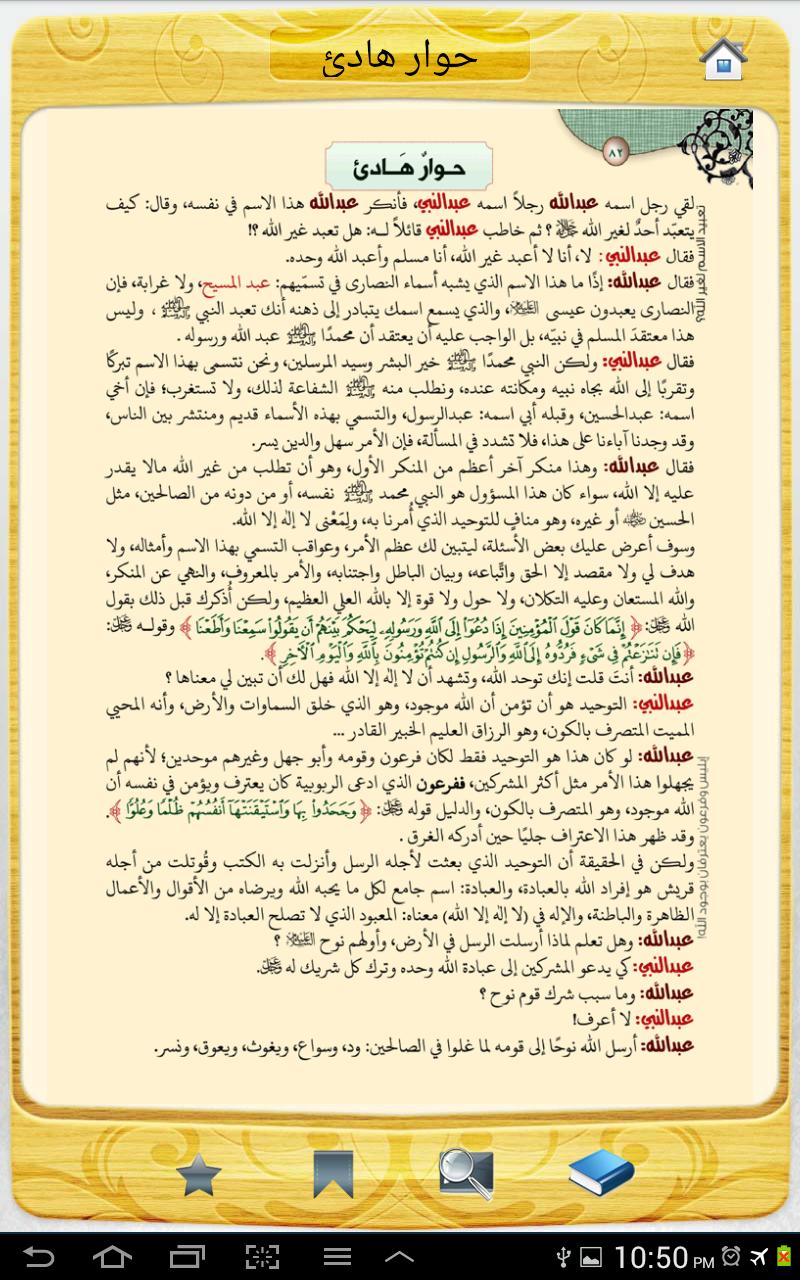 حوار هادئ
٨٢
حوارٌ هَـادئ
لقي رجل اسمه عبدالله رجلاً اسمه عبدالنبي، فأنكر عبدالله هذا الاسم في نفسه، وقال: كيف
يتعبّد أحدٌ لغير الله ﷻ ؟ ثم خاطب عبدالنبي قائلاً لـه: هل تعبد غير الله ؟!
فقال عبدالنبي: لا، أنا لا أعبد غير الله، أنا مسلم وأعبد الله وحده.
فقال عبدالله: إذًا ما هذا الاسم الذي يشبه أسماء النصارى في تسمّيهم: عبد المسيح، ولا غرابة، فإن
النصارى يعبدون عيسى عليه السلام، والذي يسمع اسمك يتبادر إلى ذهنه أنك تعبد النبي ﷺ ، وليس
هذا معتقدَ المسلم في نبيّه، بل الواجب عليه أن يعتقد أن محمدًا ﷺ عبد الله ورسوله .
فقال عبدالنبي: ولكن النبي محمدًا ﷺ خير البشر وسيد المرسلين، ونحن نتسمى بهذا الاسم تبركًا
وتقربًا إلى الله بجاه نبيه ومكانته عنده، ونطلب منه ﷺ الشفاعة لذلك، ولا تستغرب؛ فإن أخي
اسمه: عبدالحسين، وقبله أبي اسمه: عبدالرسول، والتسمي بهذه الأسماء قديم ومنتشر بين الناس،
وقد وجدنا آباءنا على هذا، فلا تشدد في المسألة، فإن الأمر سهل والدين يسر.
فقال عبدالله: وهذا منكر آخر أعظم من المنكر الأول، وهو أن تطلب من غير الله مالا يقدر
عليه إلا الله، سواء كان هذا المسؤول هو النبي محمد ﷺ نفسه، أو من دونه من الصالحين، مثل
الحسين رضي الله عنه أو غيره، وهو منافٍ للتوحيد الذي أُمرنا به، ولِمَعْنى لا إله إلا الله.
وسوف أعرض عليك بعض الأسئلة، ليتبين لك عظم الأمر، وعواقب التسمي بهذا الاسم وأمثاله، ولا
هدف لي ولا مقصد إلا الحق واتّباعه، وبيان الباطل واجتنابه، والأمر بالمعروف، والنهي عن المنكر،
والله المستعان وعليه التكلان، ولا حول ولا قوة إلا بالله العلي العظيم، ولكن أُذكرك قبل ذلك بقول
الله عز وجل: ﴿ إِنَّمَا كَانَ قَوْلَ ٱلْمُؤْمِنِينَ إِذَا دُعُوٓا۟ إِلَى ٱللَّهِ وَرَسُولِهِۦ لِيَحْكُمَ بَيْنَهُمْ أَن يَقُولُوا۟ سَمِعْنَا وَأَطَعْنَا ﴾ وقولـه عز وجل:
﴿ فَإِن تَنَٰزَعْتُمْ فِى شَىْءٍ فَرُدُّوهُ إِلَى ٱللَّهِ وَٱلرَّسُولِ إِن كُنتُمْ تُؤْمِنُونَ بِٱللَّهِ وَٱلْيَوْمِ ٱلْءَاخِرِ ﴾.
عبدالله: أنتَ قلت إنك توحد الله، وتشهد أن لا إله إلا الله فهل لك أن تبين لي معناها ؟
عبدالنبي: التوحيد هو أن تؤمن أن الله موجود، وهو الذي خلق السماوات والأرض، وأنه المحيي
المميت المتصرف بالكون، وهو الرزاق العليم الخبير القادر ...
عبدالله: لو كان هذا هو التوحيد فقط لكان فرعون وقومه وأبو جهل وغيرهم موحدين؛ لأنهم لم
يجهلوا هذا الأمر مثل أكثر المشركين، ففرعون الذي ادعى الربوبية كان يعترف ويؤمن في نفسه أن
الله موجود، وهو المتصرف بالكون، والدليل قوله عز وجل: ﴿ وَجَحَدُوا۟ بِهَا وَٱسْتَيْقَنَتْهَآ أَنفُسُهُمْ ظُلْمًا وَعُلُوًّا ﴾.
وقد ظهر هذا الاعتراف جليًا حين أدركه الغرق .
ولكن في الحقيقة أن التوحيد الذي بعثت لأجله الرسل وأنزلت به الكتب وقُوتلت من أجله
قريش هو إفراد الله بالعبادة، والعبادة: اسم جامع لكل ما يحبه الله ويرضاه من الأقوال والأعمال
الظاهرة والباطنة، والإله في (لا إله إلا الله) معناه: المعبود الذي لا تصلح العبادة إلا له.
عبدالله: وهل تعلم لماذا أرسلت الرسل في الأرض، وأولهم نوح عليه السلام ؟
عبدالنبي: كي يدعو المشركين إلى عبادة الله وحده وترك كل شريك له عز وجل.
عبدالله: وما سبب شرك قوم نوح ؟
عبدالنبي: لا أعرف!
عبدالله: أرسل الله نوحًا إلى قومه لما غلوا في الصالحين: ود، وسواع، ويغوث، ويعوق، ونسر.
تعبيد الاسم لغير الله؟
إبليس وفرعون يعترفان بوجود الله!
10:50 PM